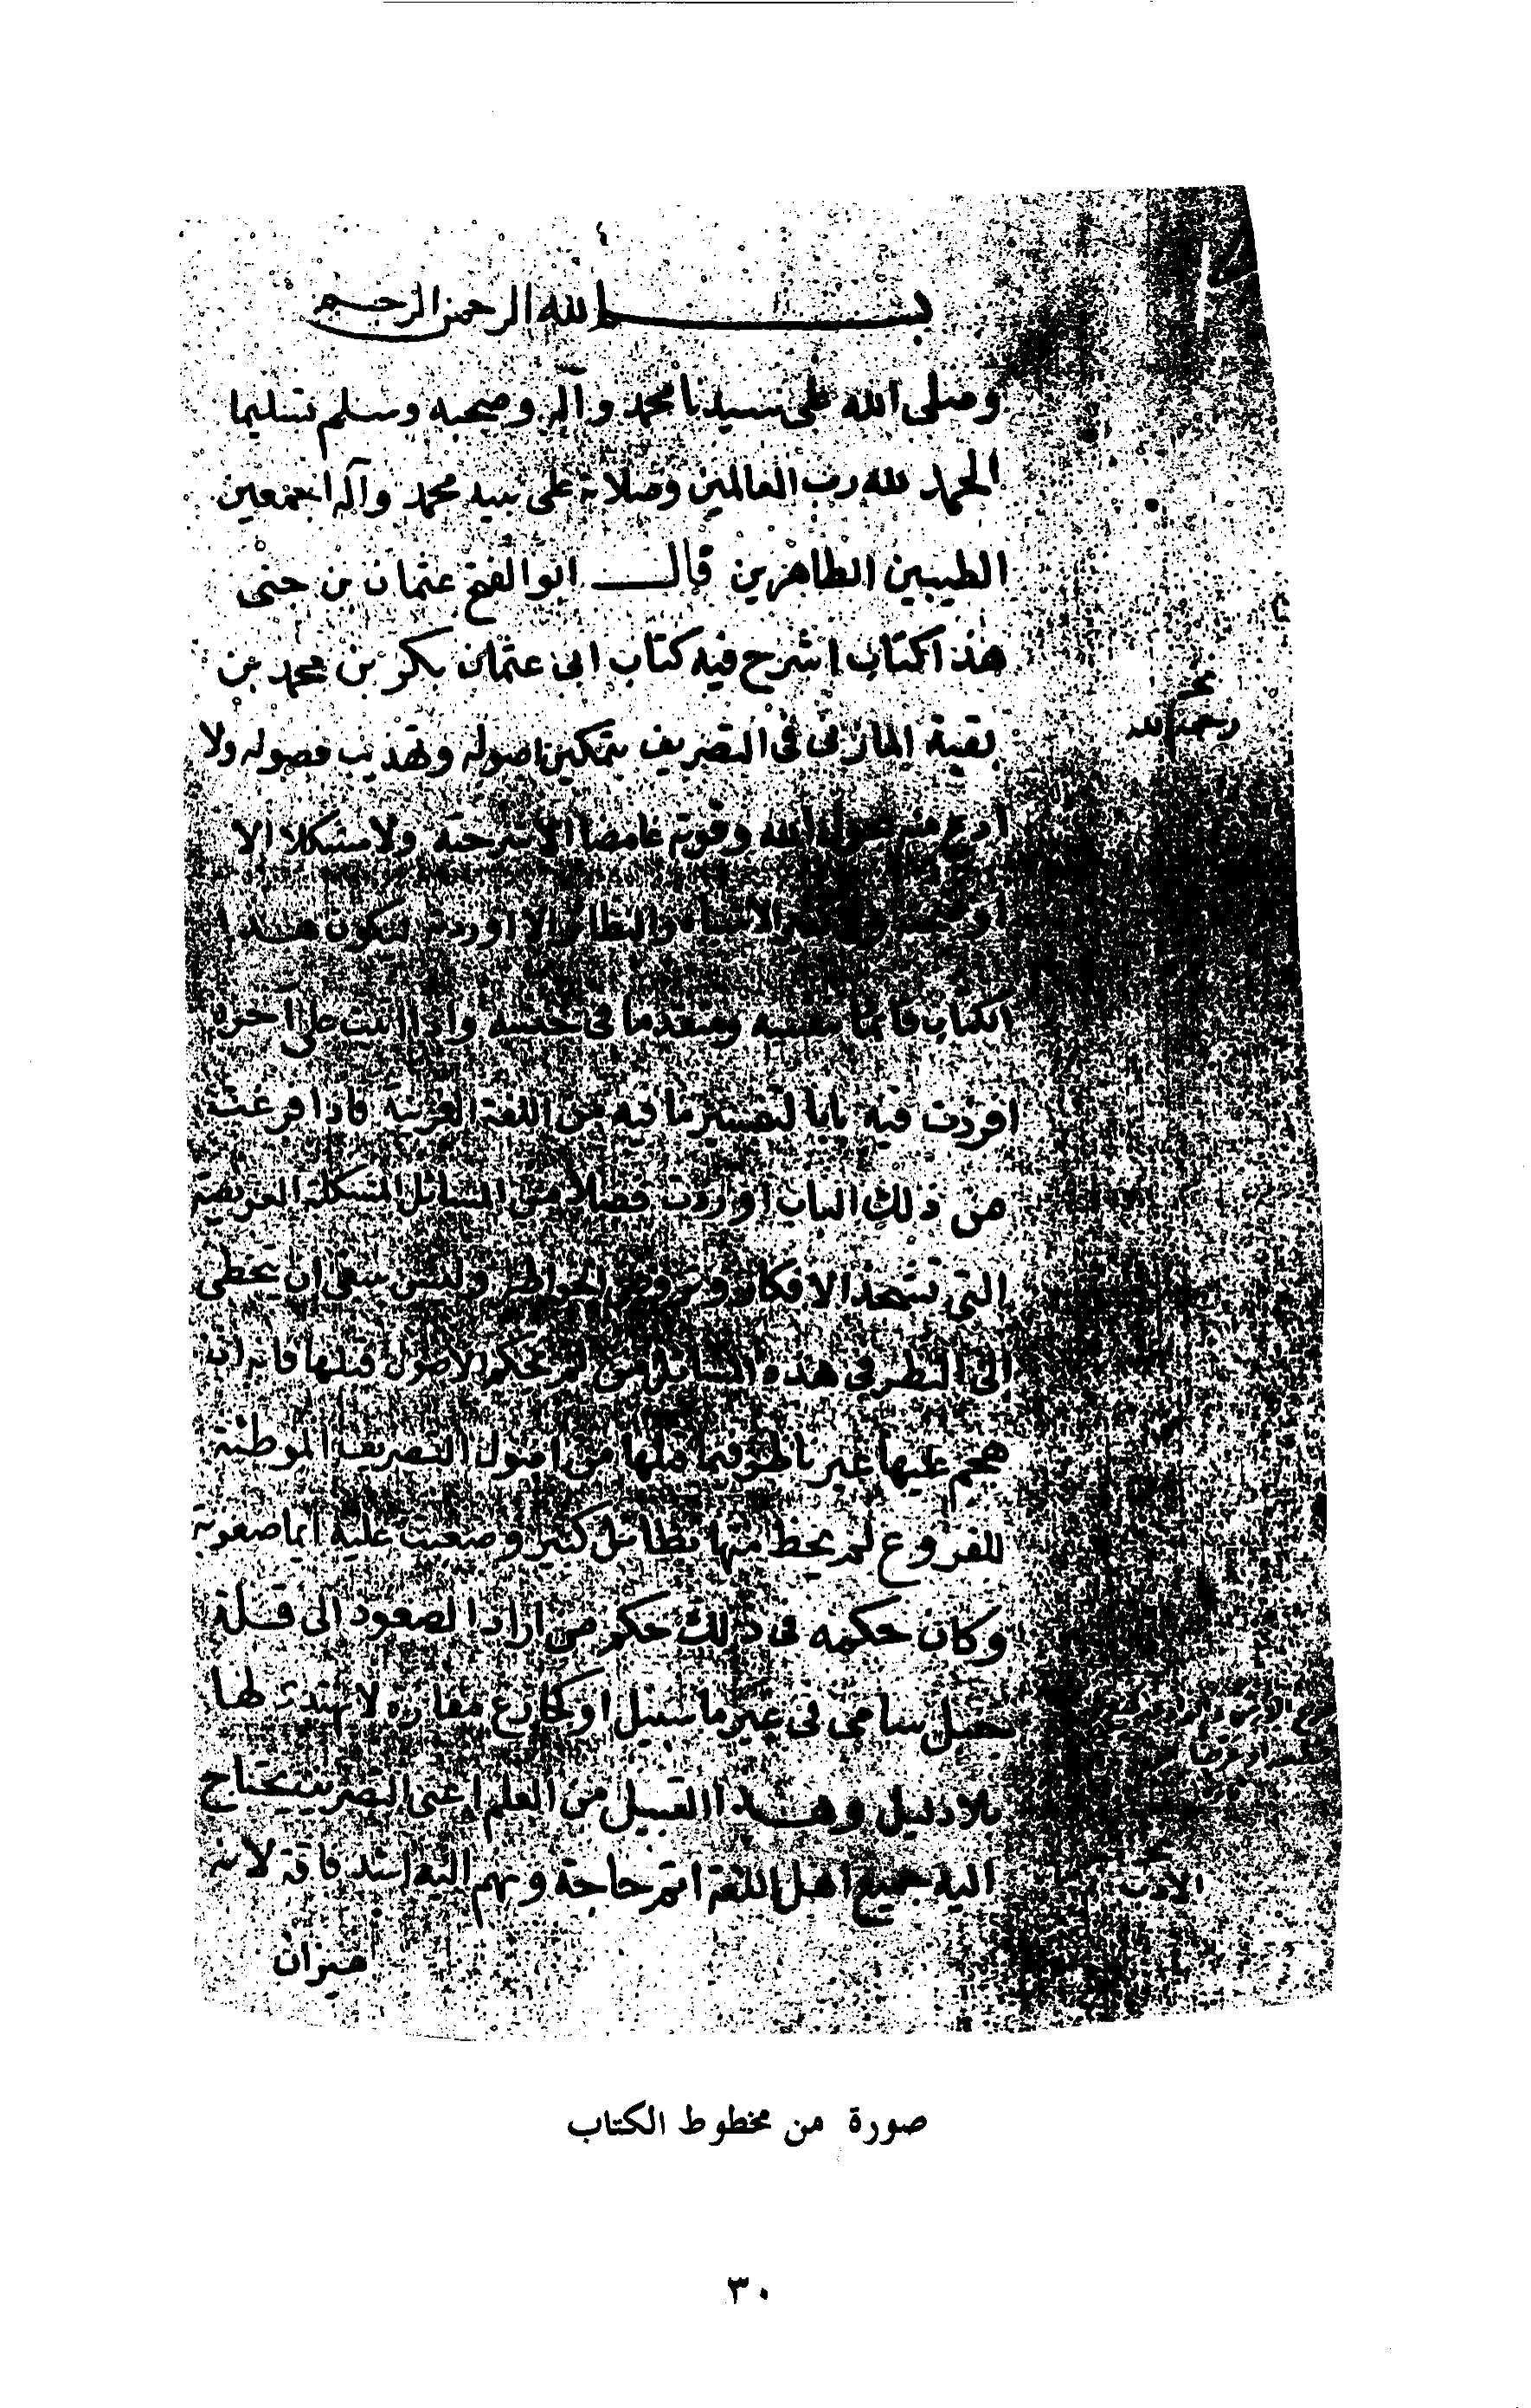 بسم الله الرحمن الرحيم
وصلى الله على سيدنا محمد وآله وصحبه وسلم تسليما
الحمد لله رب العالمين وصلاة على سيد محمد وآله اجمعين
الطيبين الطاهرين قال ابو الفتح عثمان بن جنى
هذا كتاب اشرح فيه كتاب ابى عثمان بكر بن محمد بن
بقية المازنى فى التصريف بتمكين اصوله وتهذيب فصوله ولا
رحمه الله
ادع فيه بحول الله وقوته غامضا الا شرحته ولا مشكلا الا
اوضحته ولا كثير الاشباه والنظائر الا اوردته ليكون هذا
الكتاب قائما بنفسه ومتقدما فى جنسه واذا اتيت على آخره
افردت فيه بابا لتفسير ما فيه من اللغة العربية فاذا فرغت
من ذلك الباب اوردت فصلا من المسائل المشكلة العويصة
التى تشحذ الافكار وتروض الخواطر وليس ينبغى ان يتخطى
الى النظر فى هذه المسائل من لم يحكم الاصول قبلها فانه ان
هجم عليها غير ناظر فيما قبلها من اصول التصريف الموطئة
للفروع لم يحظ منها بطائل كثير وصعبت عليه ايما صعوبة
وكان حكمه فى ذلك حكم من اراد الصعود الى قلة
جبل سامى فى غير ما سبيل او كجازع مفازة لا يهتدى لها
بلا دليل وهذا القبيل من العلم اعنى التصريف يحتاج
اليه جميع اهل اللغة اتم حاجة وبهم اليه اشد فاقة لانه
الادب
ميزان
صورة من مخطوط الكتاب
٣٠